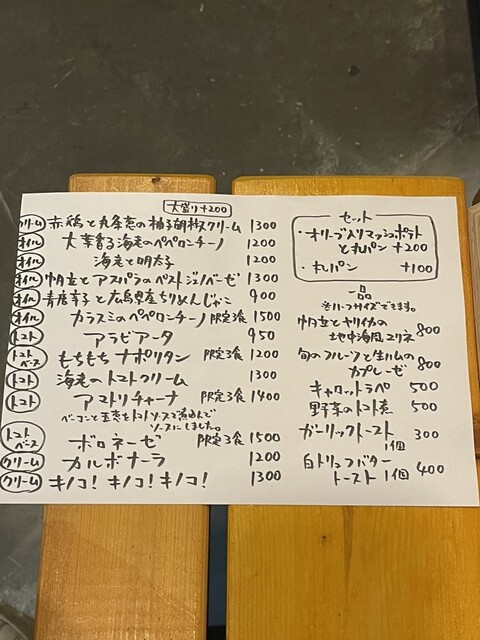 大盛り+200
クリーム 赤鶏と九条葱の柚子胡椒クリーム 1300
オイル 大葉香る海老のペペロンチーノ 1200
オイル 海老と明太子 1200
オイル 帆立とアスパラのペストジェノベーゼ 1300
オイル 青唐辛子と広島県産ちりめんじゃこ 900
オイル カラスミのペペロンチーノ 限定3食 1500
トマト アラビアータ 950
トマトベース もちもちナポリタン 限定3食 1200
トマト 海老のトマトクリーム 1300
トマト アマトリチャーナ 限定3食 1400
ベーコンと玉葱をトマトソースで煮込んで
ソースにしました。
トマトベース ボロネーゼ 限定3食 1500
クリーム カルボナーラ 1200
クリーム キノコ!キノコ!キノコ! 1300
セット
・オリーブ入りマッシュポテト
と丸パン +200
・丸パン +100
一品
※ハーフサイズできます。
帆立とヤリイカの
地中海風マリネ 800
旬のフルーツと生ハムの
カプレーゼ 800
キャロットラペ 500
野菜のトマト煮 500
ガーリックトースト
1個 300
白トリュフバター
トースト 1個 400